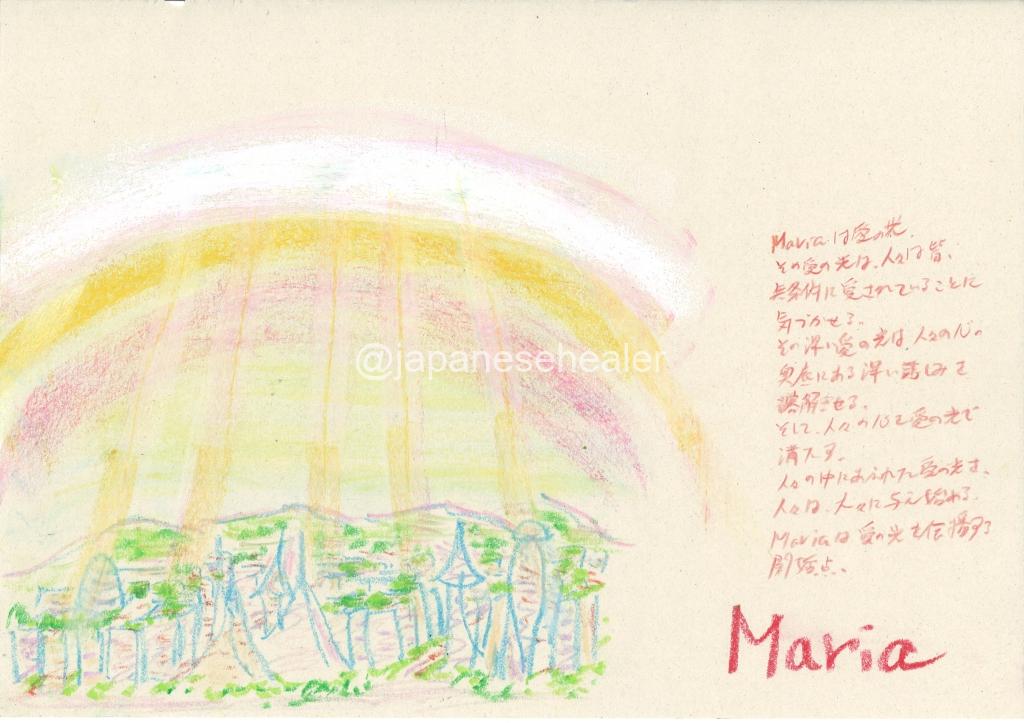 @japanesehealer
Mariaは愛の光。
その愛の光は、人々は皆、
無条件に愛されていることに
気づかせる。
その深い愛の光は、人々の心の
奥底にある深い悲しみを
融解させる。
そして、人々の心を愛の光で
満たす。
人々の中にあふれた愛の光を、
人々は、人々に与え始める。
Mariaは愛の光を伝播する
開始点。
Maria